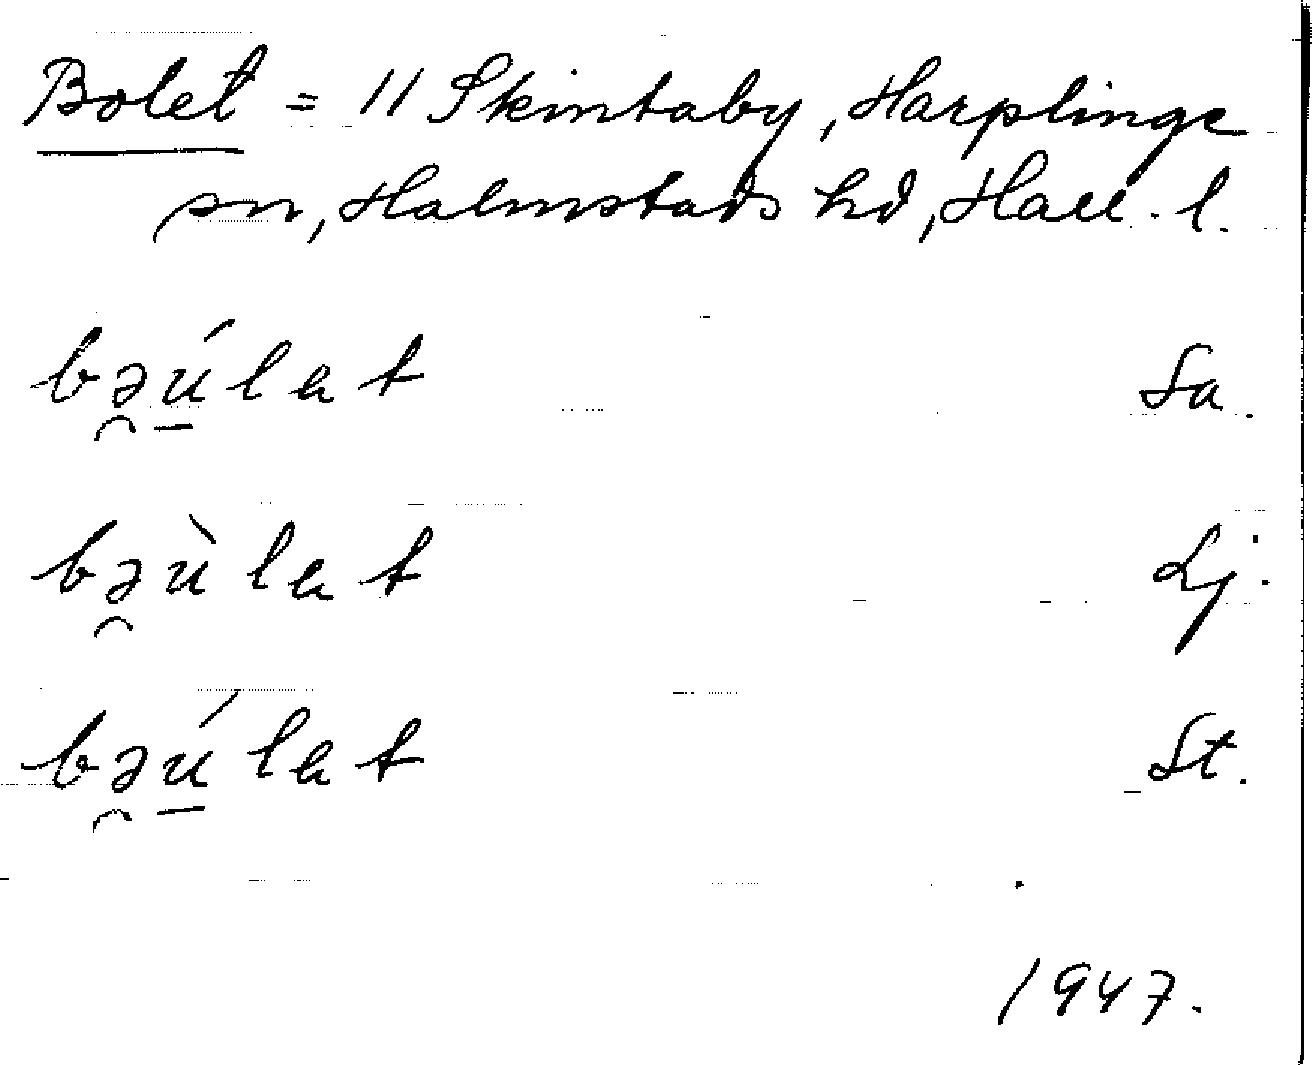 Bolet = 11 Skintaby, Harplinge
sn, Halmstads hd, Hall. l.
bə̯ú̱lat Sa.
bə̯ùlat Lj.
bə̯ú̱lat St.
1947.